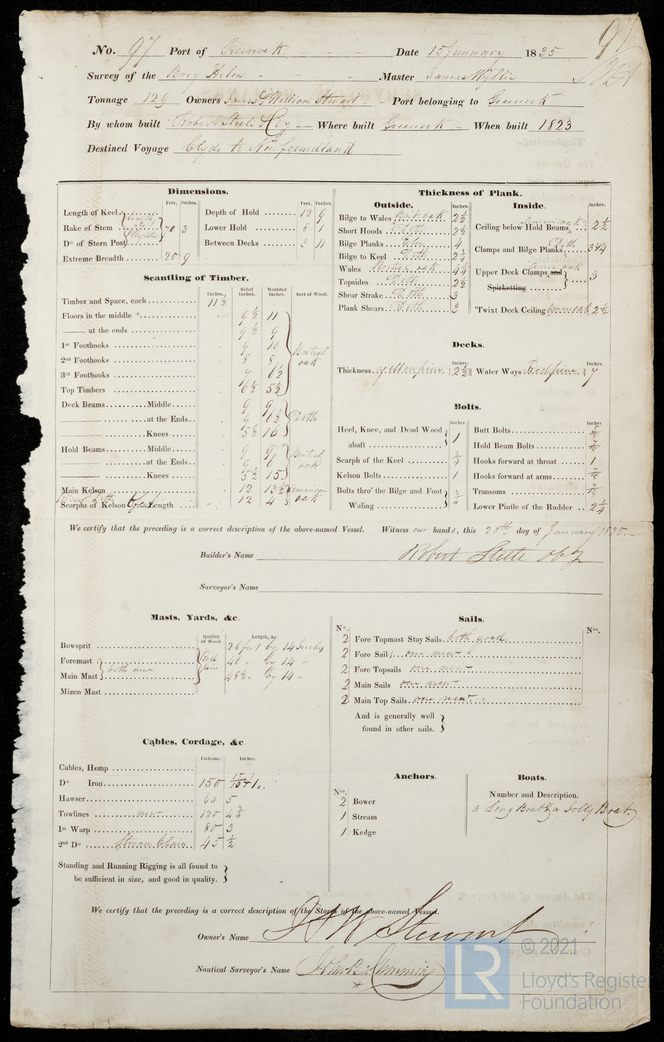 No. 97 Port of Greenock Date 15 January 1835
97
Survey of the Helen Master James Wyllie
Tonnage 129 Owners James & William Stewart Port belonging to Greenock
By whom built Robert Steele & Co Where built Greenock When built 1823
Destined Voyage Clyde to Newfoundland
Dimensions.
Feet. Inches.
Length of Keel
Rake of Stem
Do of Stern Post
3
Extreme Breadth 20 9
Feet. Inches.
Depth of Hold 12 9
Lower Hold 8 1
Between Decks 3 11
Scantling of Timber.
Inches. Sided Inches. Moulded Inches. Sort of Wood.
Timber and Space, each 11½
Floors in the middle 9½ 11
—— at the ends 9½ 9
1st Foothooks 9 10
2nd Foothooks 8 8
3rd Foothooks
Top Timbers 6½ 5½
British oak
Deck Beams Middle 9
—— at the Ends 9
—— Knees 5½ 16
Ditto
Hold Beams Middle 9
—— at the Ends 9
—— Knees 5½ 15
British oak
Main Kelson 12 13½
Scarphs of Kelson Length 12 4
American oak
Thickness of Plank.
Outside. Inches.
Bilge to Wales oak 2½
Short Hoods Ditto 2½
Bilge Planks 4
Bilge to Keel Ditto
Wales oak
Topsides Ditto 2½
Shear Strake Ditto 3
Plank Shears Ditto 3
Inside. Inches.
Ceiling below Hold Beams oak 2½
Clamps and Bilge Planks Ditto 3&4
Upper Deck Clamps and Spirketting oak 3
'Twixt Deck Ceiling 2½
Decks.
Inches.
Thickness yellow pine 2½
Inches.
Water Ways Red pine 7
Bolts.
Inches
Heel, Knee, and Dead Wood abaft 1
Scarph of the Keel
Kelson Bolts 1
Bolts thro' the Bilge and Foot Waling
Inches
Butt Bolts
Hold Beam Bolts
Hooks forward at throat 1
Hooks forward at arms
Transoms
Lower Pintle of the Rudder 2¼
We certify that the preceding is a correct description of the above-named Vessel. Witness our hands, this 20th day of January 1835
Builder's Name Robert Steele & Co
Surveyor's Name
Masts, Yards, &c.
Quality of Wood. Length, &c.
Bowsprit 26 feet by 14 Inches
Foremast by 14 "
Main Mast by 14 "
both new
Red pine
Mizen Mast
Sails.
No. No.
2 Fore Topmast Stay Sails both good
2 Fore Sail one new
2 Fore Topsails one new
2 Main Sails one new
2 Main Top Sails one new
And is generally well found in other sails.
Cables, Cordage, &c.
Fathoms. Inches.
Cables, Hemp
Do Iron 150
Hawser 60 5
Towlines new 120
1st Warp 80 3
2nd Do Stream Chain 45 ½
Standing and Running Rigging is all found to
be sufficient in size, and good in quality.
Anchors.
Nos.
2 Bower
1 Stream
1 Kedge
Boats.
Number and Description.
a Long Boat & a Jolly Boat
We certify that the preceding is a correct description of the Stores of the above-named Vessel.
Owner's Name J & W Stewart
Nautical Surveyor's Name
LR
© 2021
Lloyd's Register
Foundation